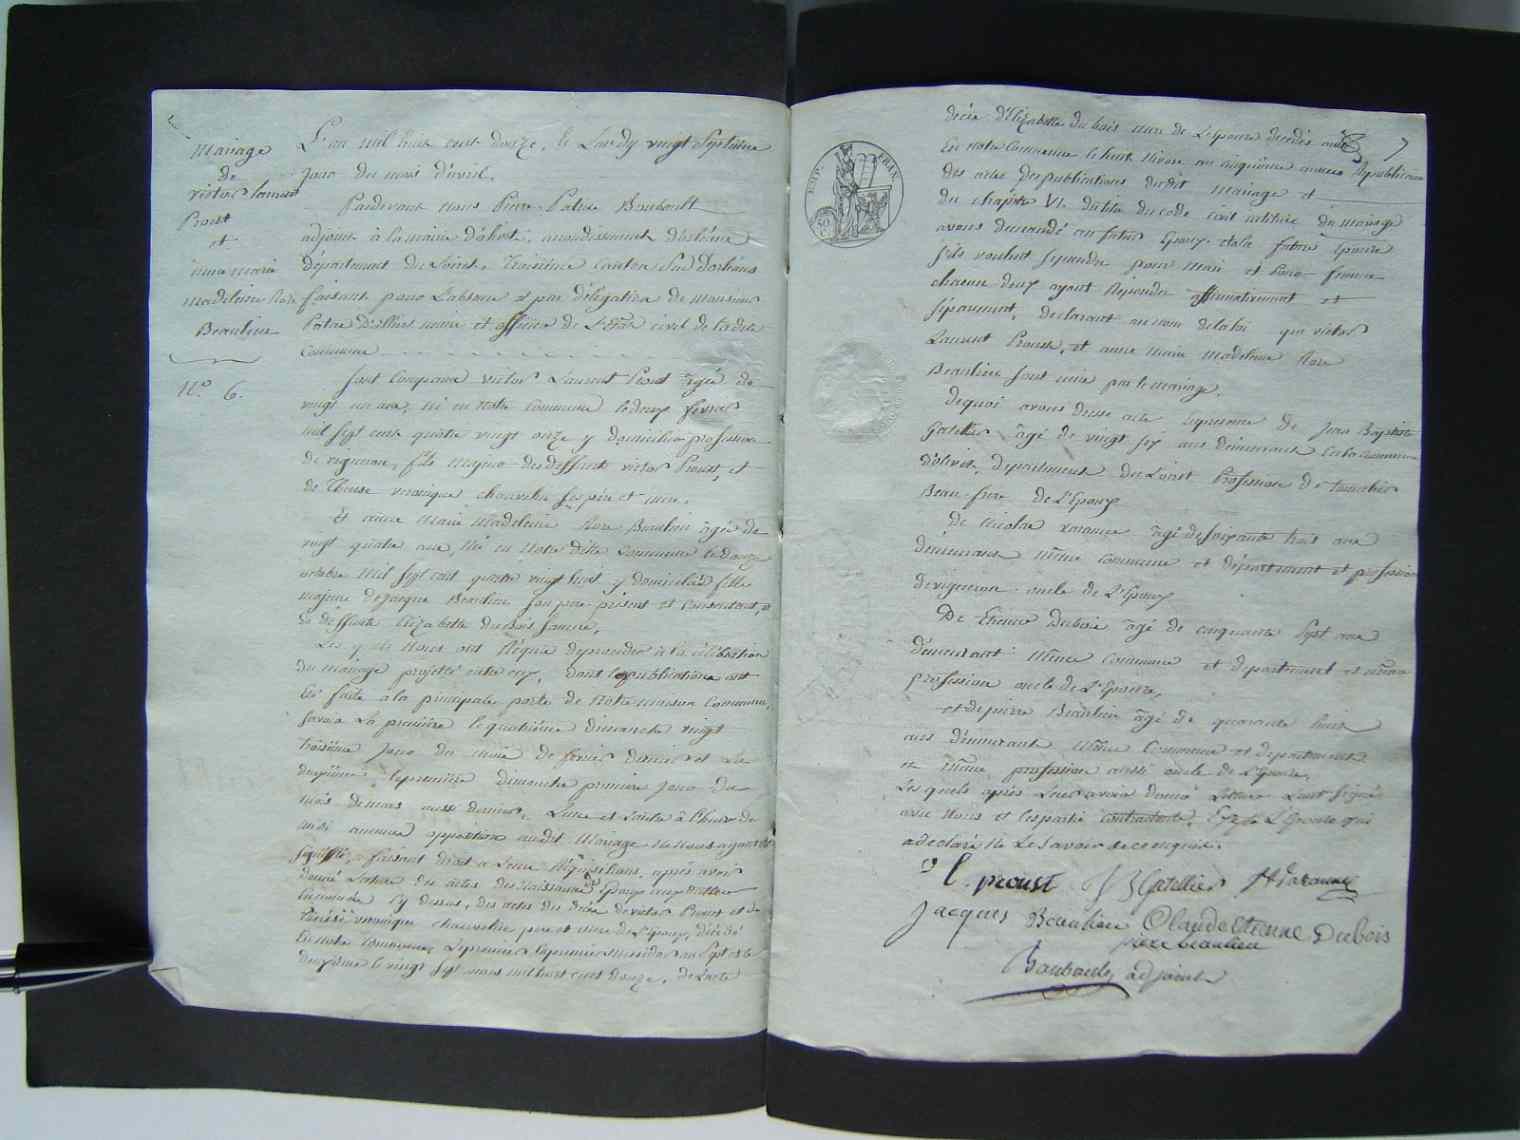 Mariage
de
victor laurent
Proust
et
anne marie
madeleine Rose
Beaulieu
N.º 6.
L'an mil huit cent douze, le Lundy vingt Septième
jour du mois d'avril.
Pardevant nous Pierre Patrice Boubault
adjoint à la mairie d'olivet, arrondissement d'orléans
département du Loiret, troisième canton Sud d'orléans
faisant pour L'absence et par délégation de monsieur
maire et officier de L'état civil de ladite
Commune
Sont Comparus victor Laurent Proust âgé de
vingt un ans, né en notre commune le douze février
mil sept cent quatre vingt onze y domicilié profession
de vigneron, fils majeur des deffunts victor Proust, et
de Therese veronique chauvelin ses père et mère.
Et anne Marie Madeleine Rose Beaulieu âgée de
vingt quatre ans, Née en Notre dite Commune le douze
octobre mil sept cent quatre vingt huit, y domiciliée fille
majeure de jacque Beaulieu son père présent et consentant, et
de deffunte Elizabette dubois sa mère,
Les y de Nous ont Réquis de procéder à la célébration
du mariage projetté entre eux, dont les publications ont
été faite à la principale porte de Notre maison Commune,
Savoir La première le quatrième dimanche vingt
troisième jour du mois de fevrier dernier et La
deuxième le première dimanche premier jour du
mois de mars aussi dernier, Lune et Lautre à l'heure de
midi aucune opposition audit Mariage Ne Nous ayant été
Signiffié, faisant droit a Leur Réquisitions, après avoir
donné Lecture des actes des Naissances des Epoux
cy dessus, des actes du décès de victor Proust et de
Thérèse veronique chauvelin père et mère de L'Epoux, décédé
En notre Commune, Le premier Le premier messidor an Sept et la
deuxième le vingt Sept mars mil huit cent douze, de L'acte
7
EMP. FRAN.
décès d'Elizabette du bois mère de L'Epouse décédée aussi
En notre Commune le huit Nivose an cinquième année Républicaine
des actes des publications dudit mariage et
du chapitre VI. du titre du code civil intitulé du mariage
avons demandé au futur Epoux et à la future Epouse
s'ils veulent se prendre pour mari et pour femme
chacun deux ayant Répondu affirmativement et
séparément, déclarant au nom de la loi que victor
Laurent Proust, et anne marie madeleine Rose
Beaulieu sont unis par le mariage.
de quoi avons dressé acte En présence de Jean Baptiste
Gatellier âgé de vingt six ans demeurant En la commune
d'olivet, departement du Loiret Profession de tonnelier
Beau frère de L'Epoux
de Nicolas âgé de soixante trois ans
demeurant même commune et département et profession
de vigneron oncle de L'Epoux
De Etienne Dubois âgé de cinquante Sept ans
demeurant même Commune et departement et même
profession oncle de L'Epouse,
et de pierre Beaulieu âgé de quarante huit
ans demeurant même Commune et departement
et même profession aussi oncle de L'Epouse,
Les quels après Leur avoir donné Lecture L'ont signé
avec Nous et les partie contractante, L'Epouse qui
a déclaré Ne Le savoir de ce enquise.
v l. proust J B Gatellier
Jacques Beaulieu Claude Etienne Dubois
piere beaulieu
Boubault adjoint